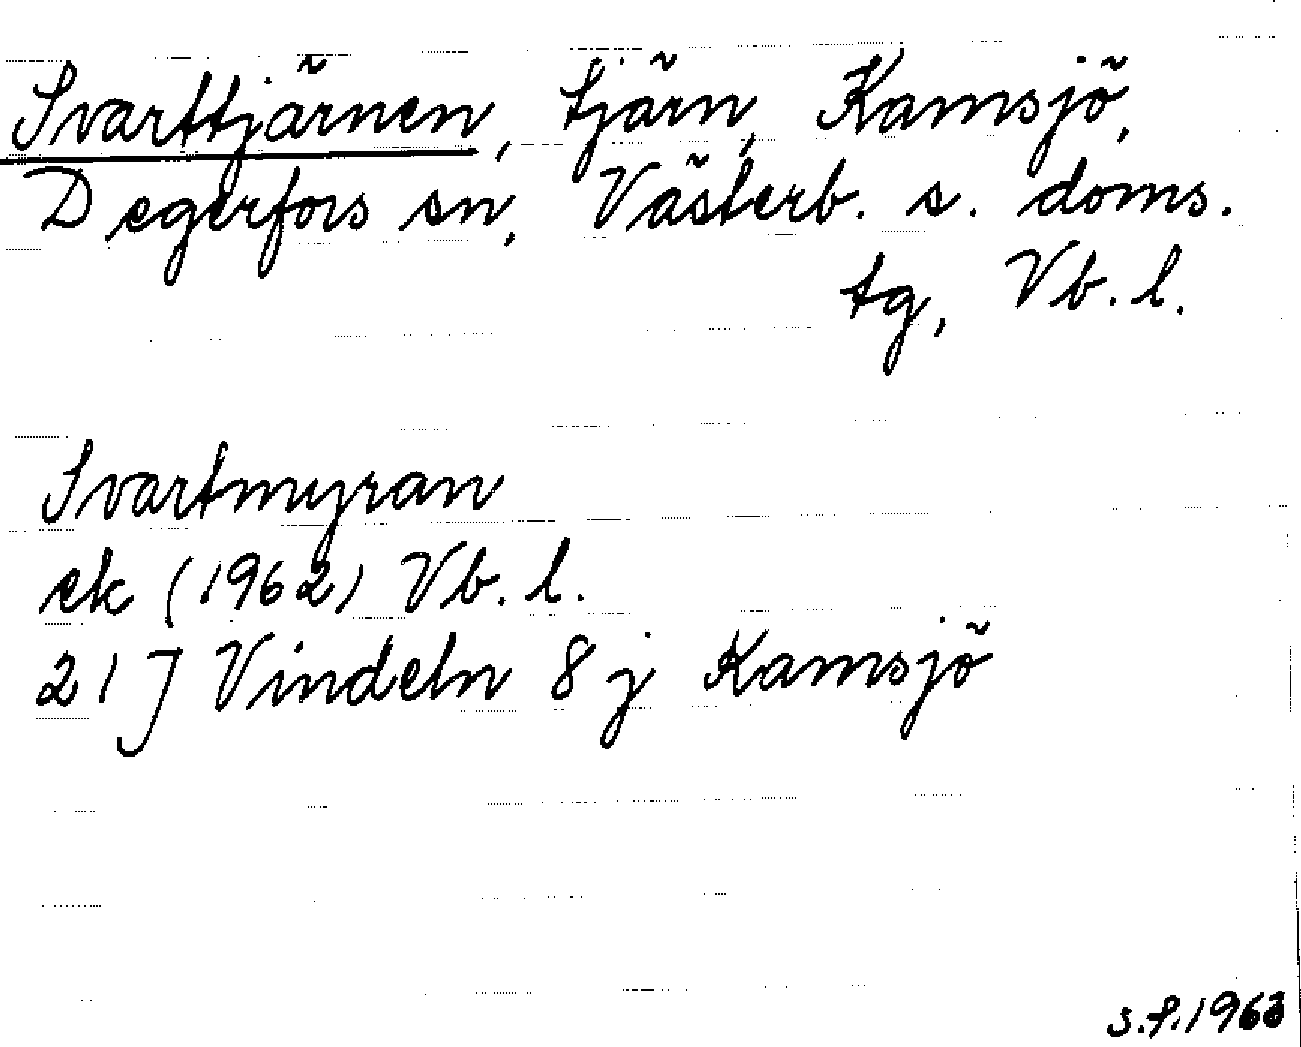 Svarttjärnen, tjärn, Kamsjö,
Degerfors sn, Västerb. s. doms.
tg, Vb. l.
Svartmyran
ek (1962) Vb. l.
21J Vindeln 8j Kamsjö
s.f.1963